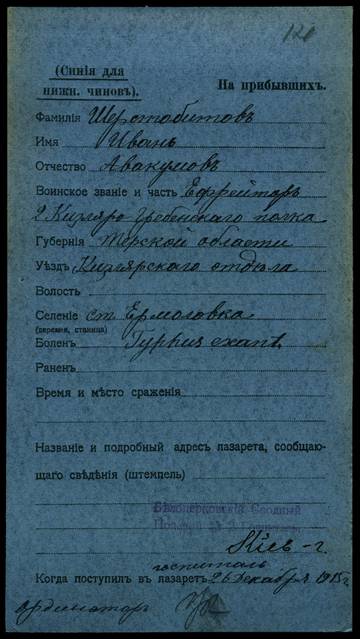 121
(Синія для
нижн. чиновъ).
На прибывшихъ.
Фамилія Шерстобитовъ
Имя Иванъ
Отчество Авакумовъ
Воинское званіе и часть Ефрейторъ
2 Кизляро Гребенскаго полка
Губернія Терской области
Уѣздъ Кизлярскаго отдѣла
Волость
Селеніе ст. Ермоловка
(деревня, станица)
Боленъ Typhus exant.
Раненъ
Время и мѣсто сраженія
Названіе и подробный адресъ лазарета, сообщаю-
щаго свѣдѣнія (штемпель)
Бѣлоцерковскій Сводный
Кіев-г.
госпиталь
Когда поступилъ въ лазаретъ 26 Декабря 1915 г.
ординаторъ